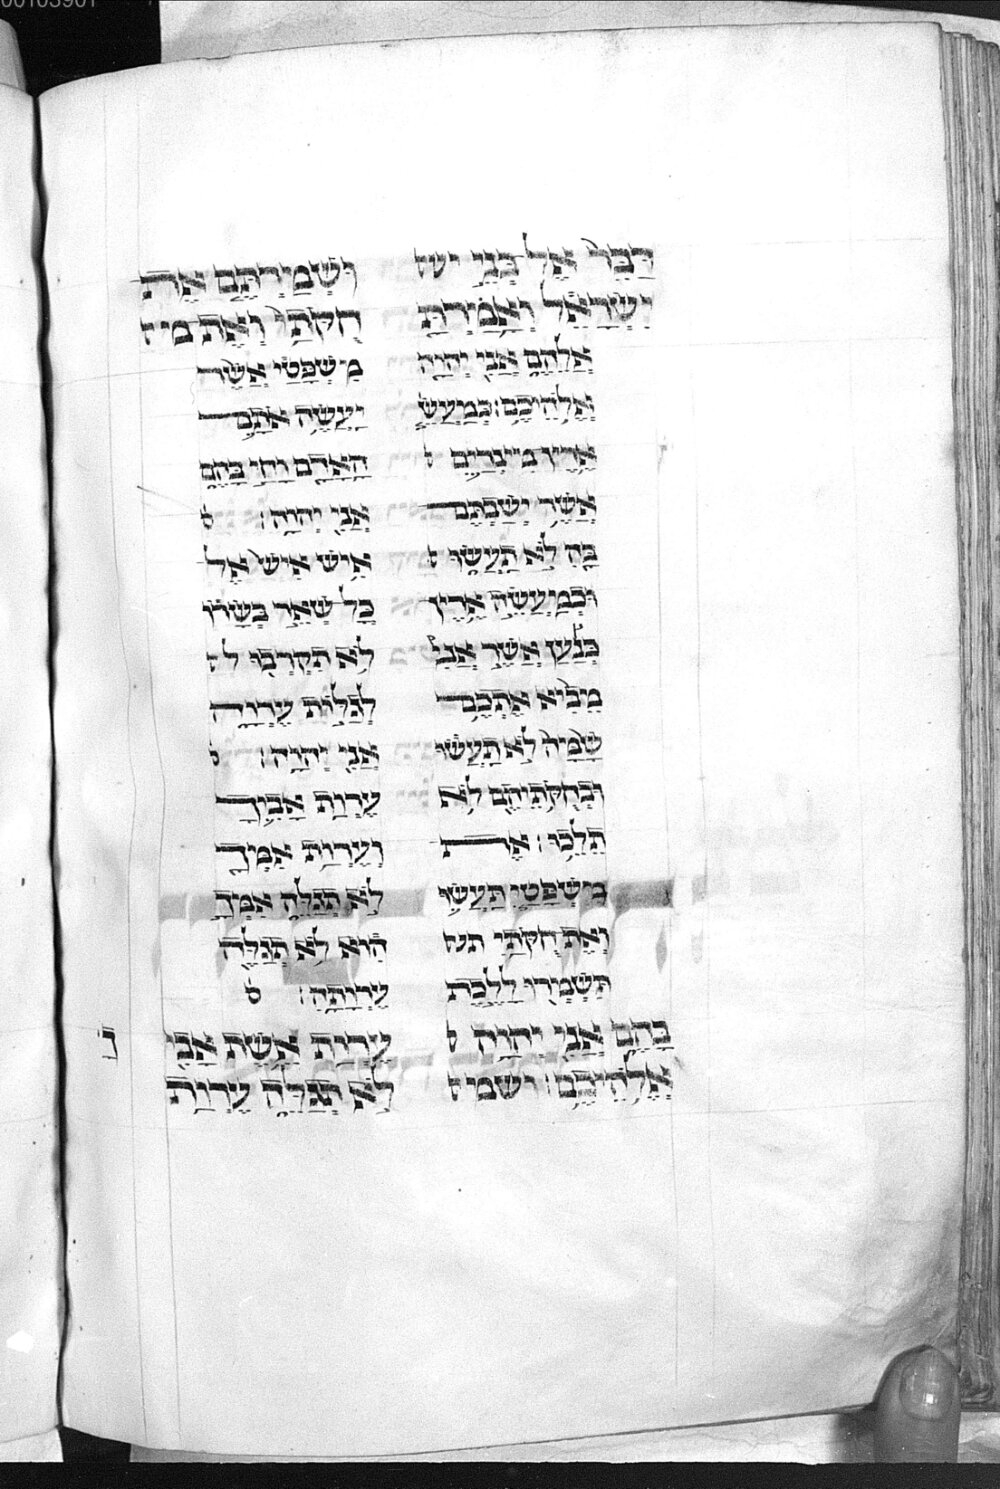 דַּבֵּר֙ אֶל־בְּנֵ֣י יש
יִשְׂרָאֵ֔ל וְאָמַרְתָּ֖
אֲלֵהֶ֑ם אֲנִ֖י יְהוָ֥ה
אֱלֹהֵיכֶֽם׃ כְּמַעֲשֵׂ֧
אֶֽרֶץ־מִצְרַ֛יִם
אֲשֶׁ֥ר יְשַׁבְתֶּם־
בָּ֖הּ לֹ֣א תַעֲשׂ֑וּ
וּכְמַעֲשֵׂ֣ה אֶֽרֶץ־
כְּנַ֡עַן אֲשֶׁ֣ר אֲנִי֩
מֵבִ֨יא אֶתְכֶ֥ם
שָׁ֨מָּה֙ לֹ֣א תַעֲשׂ֔וּ
וּבְחֻקֹּתֵיהֶ֖ם לֹ֥א
תֵלֵֽכוּ׃ אֶת־
מִשְׁפָּטַ֧י תַּעֲשׂ֛וּ
וְאֶת־חֻקֹּתַ֥י תש
תִּשְׁמְר֖וּ לָלֶ֣כֶת
בָּהֶ֑ם אֲנִ֖י יְהוָ֥ה
אֱלֹהֵיכֶֽם׃ ושמ
וּשְׁמַרְתֶּ֤ם אֶת־
חֻקֹּתַי֙ וְאֶת־מ
מִשְׁפָּטַ֔י אֲשֶׁ֨ר
יַעֲשֶׂ֥ה אֹתָ֛ם
הָאָדָ֖ם וָחַ֣י בָּהֶ֑ם
אֲנִ֖י יְהוָֽה׃ ס
אִ֥ישׁ אִישׁ֙ אֶל־
כָּל־שְׁאֵ֣ר בְּשָׂר֔וֹ
לֹ֥א תִקְרְב֖וּ ל
לְגַלּ֣וֹת עֶרְוָ֑ה
אֲנִ֖י יְהוָֽה׃ ס
עֶרְוַ֥ת אָבִ֛יךָ
וְעֶרְוַ֥ת אִמְּךָ֖
לֹ֣א תְגַלֵּ֑ה אִמְּךָ֣
הִ֔וא לֹ֥א תְגַלֶּ֖ה
עֶרְוָתָֽהּ׃ ס
עֶרְוַ֥ת אֵֽשֶׁת־אָבִ֖י
לֹ֣א תְגַלֵּ֑ה עֶרְוַ֥ת